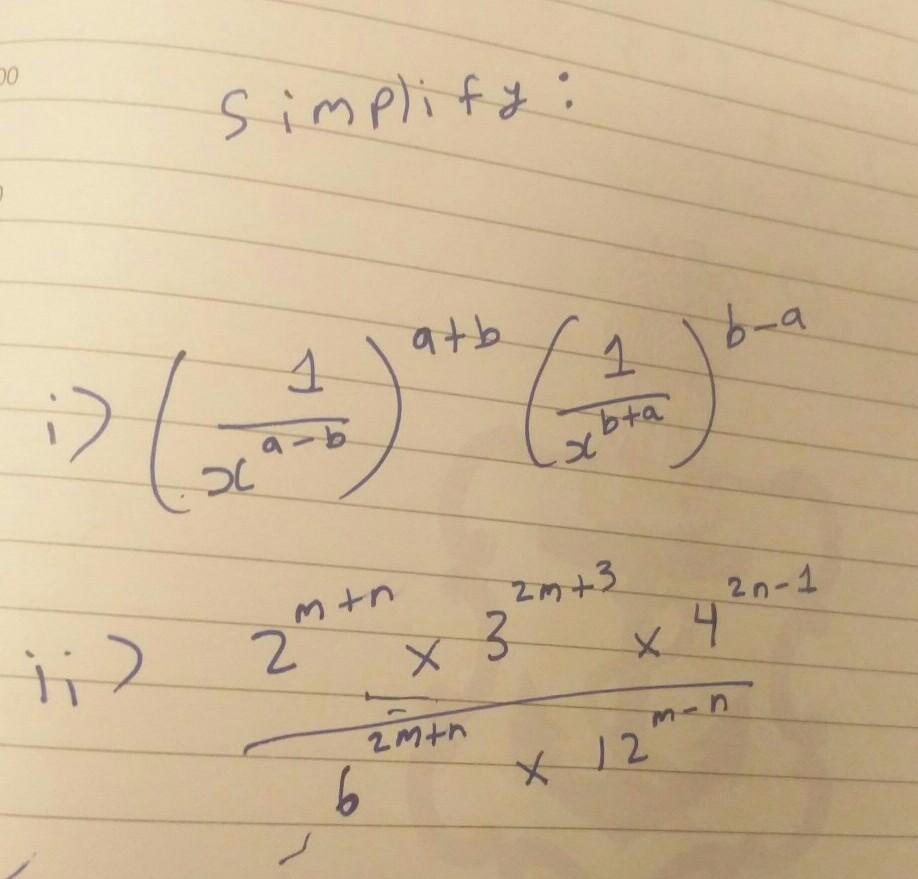 00
Simplify:
i) (1/x^(a-b))^(a+b) (1/x^(b+a))^(b-a)
ii) (2^(m+n) × 3^(2m+3) × 4^(2n-1))/(6^(2m+n) × 12^(m-n))